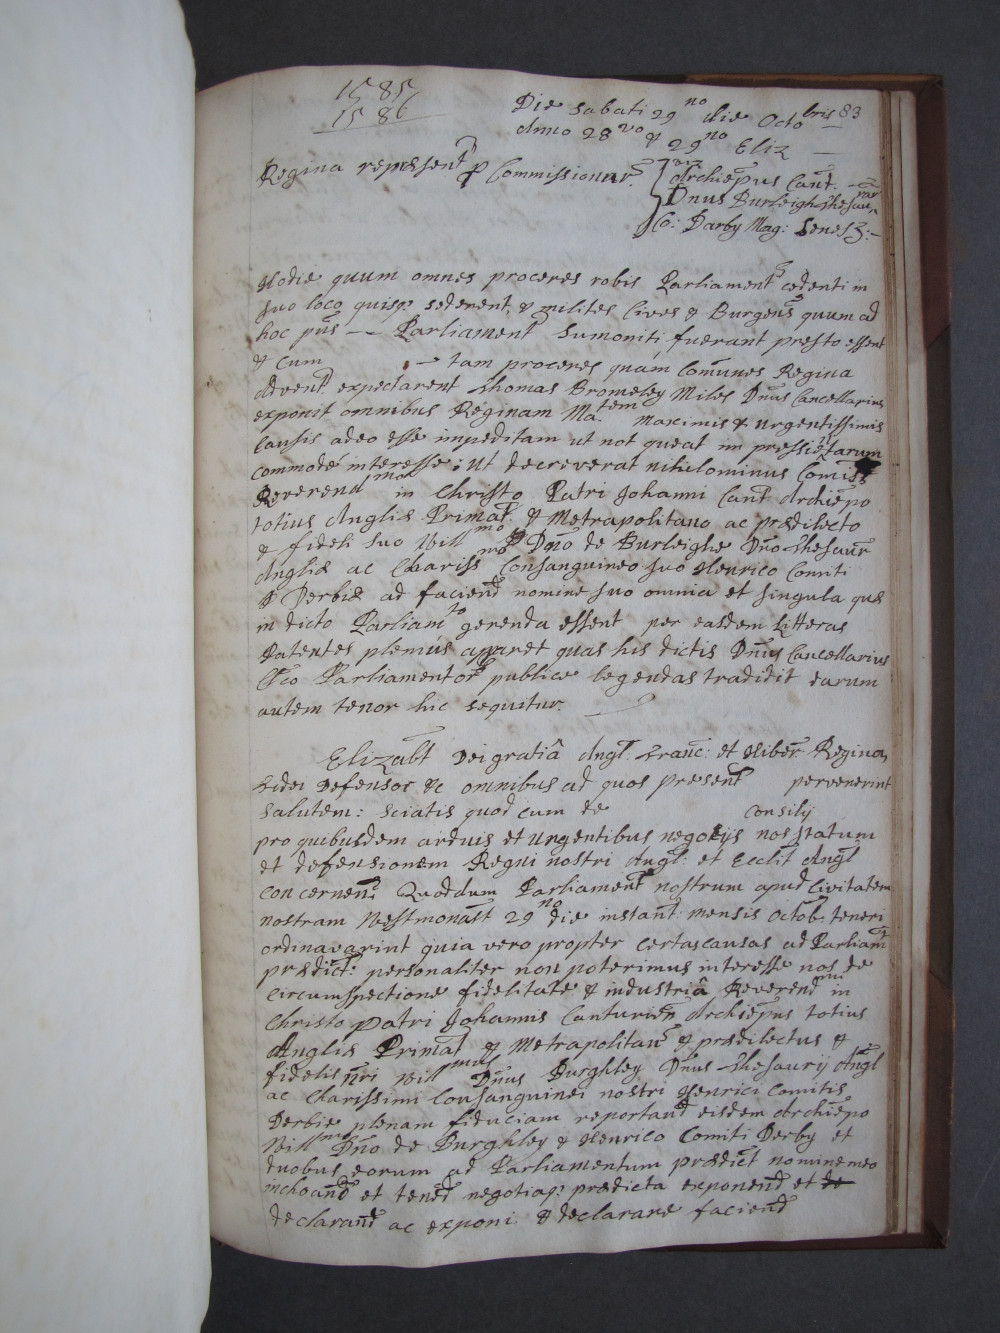 1585
1586
Die Sabati 29no die Octobris 83
Anno 28vo & 29no Eliz
Regina represent p Commissionar. viz
Archiepus Cant.
Dnus Burleigh Thesaurar
Co: Darby Mag: Senesz:
Hodie quum omnes proceres robis Parliament cedenti in
suo loco quisq. sederent, & milites Cives & Burgens quum ad
hoc pns — Parliament Sumoniti fuerant presto essent
& Cum — tam proceres quám Comunes Regina
Advent expectarent Thomas Bromeley Miles Dnus Cancellarius
exponit omnibus Reginam Ma.tem maximis & urgentissimis
Causis adeo esse impeditam ut not queat in pressietarum
commodé interesse: Ut decreverat nihilominus Comiss
Reverendmo in Christo Patri Johanni Cant Archiepo
totius Angliæ Primat. & Metrapolitano ac prædilecto
& fideli suo Willmo Dno de Burleighe Dno Thesaur
Angliæ ac Charissmo Consanguineo suo Henrico Comiti
Derbiæ ad faciend nomine suo omnia et singula quæ
in dicto Parliamto gerenda essent per easdem Litteras
Patentes plenius apparet quas his dictis Dnus Cancellarius
Clico Parliamentor publice legendas tradidit earum
autem tenor hic sequitur.
Elizabt Dei gratiâ Angl. Franc: et Hiber Regina,
Fidei Defensor &c omnibus ad quos present pervenerint
Salutem: Sciatis quod cum de Consilij
pro quibusdem arduis et urgentibus negotijs nos statum
et defensionem Regni nostri Angl: et Ecclit Angl
Concernen. Quoddum Parliament nostrum apud Civitatem
nostram Westmonast 29no die instant: mensis Octob. teneri
ordinavarint quia vero propter certas causas ad Parliam
prædict: personaliter non poterimus interesse nos de
Circumspectione fidelitate & industriâ Reverendmi in
Christo Patri Johannis Canturien Archiepus totius
Angliæ Primat & Metrapolitan & prædilectus &
fidelis nri Willmus Dnus Burghley Dnus Thesaurij Angl
ac Charissimi Consanguinei nostri Henrici Comitis
Derbie plenam fiduciam reportand eisdem Archiepo
Willmo Dno de Burghley & Henrico Comiti Derby et
duobus eorum ad Parliamentum prædict nomine meo
inchoand et tened negotiaq. prædicta exponend et de
declarand ac exponi & declarare faciend